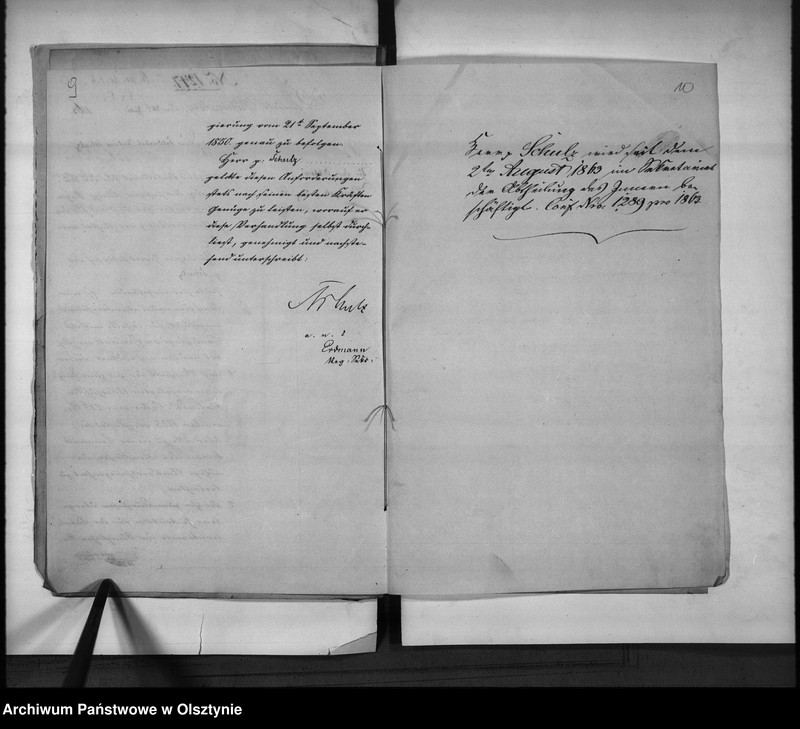 9
gierung vom 21t September
1850. genau zu befolgen.
Herr p. Schulz
gelobte diesen Anforderungen
stets nach seinen besten Kräften
Genüge zu leisten, worauf er
diese Verhandlung selbst durch-
liest, genehmigt und nachste-
hend unterschreibt:
Schulz
a. u. s
Erdmann
Reg: Sekr:
10
Herr p Schulz wird seit dem
2ten August 1863 im Sekretariat
der Abtheilung des Innern be-
schäftigt. Conf. Nro: 1289 pro 1863
No 1247
Archiwum Państwowe w Olsztynie